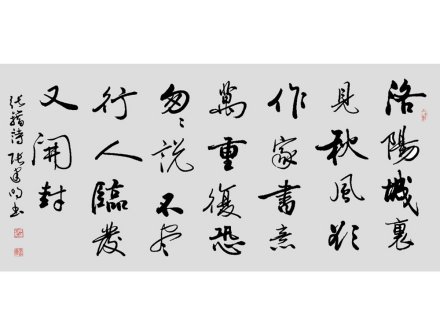 洛陽城裏
見秋風欲
作家書意
萬重復恐
匆〻說不盡
行人臨發
又開封
張籍詩 張